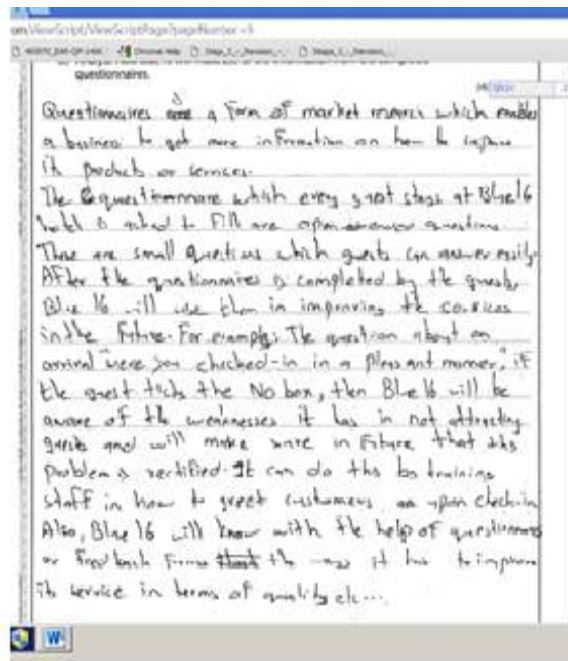 om/ViewScript/ViewScriptPage?pageNumber=9
Chrome Help
questionnaires.
Questionnaires a form of market research which enables
a business to get more information on how to improve
it products or services.
The questionnaire which every guest stays at Blue 16
hotels is asked to fill are open questions.
These are small questions which guests can answer easily.
After the questionnaires is completed by the guests,
Blue 16 will use them in improving the services
in the future. For example: The question about on
arrival "were you checked-in in a pleasant manner," if
the guest ticks the No box, then Blue 16 will be
aware of the weaknesses it has in not attracting
guests and will make sure in future that this
problem is rectified. It can do this by training
staff in how to greet customers upon check-in
Also, Blue 16 will know with the help of questionnaires
or feedback forms the it has to improve
its service in terms of quality etc...
W